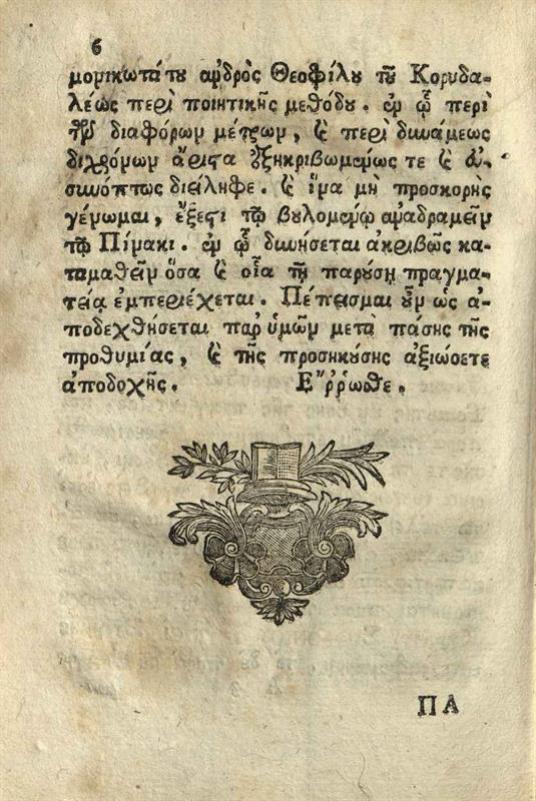 6
μονικωτάτου ανδρὸς Θεοφίλου τοῦ Κορυδα-
λέως περὶ ποιητικῆς μεθόδου. ἐν ᾧ περὶ
τῶν διαφόρων μέτρων, καὶ περὶ δυνάμεως
διχρόνων ἄριστα ἐξηκριβωμένως τε καὶ εὐ-
συνόπτως διείληφε. καὶ ἵνα μὴ προσκορὴς
γένωμαι, ἔξεστι τῷ βουλομένῳ αναδραμεῖν
τῷ Πίνακι. ἐν ᾧ δυνήσεται ἀκριβῶς κα-
ταμαθεῖν ὅσα καὶ οἷα τῇ παρούσῃ πραγμα-
τείᾳ ἐμπεριέχεται. Πέπεισμαι οὖν ὡς ἀ-
ποδεχθήσεται παρ' ὑμῶν μετὰ πάσης τῆς
προθυμίας, καὶ τῆς προσηκούσης ἀξιώσετε
ἀποδοχῆς. Ἔῤῥωσθε.
ΠΑ